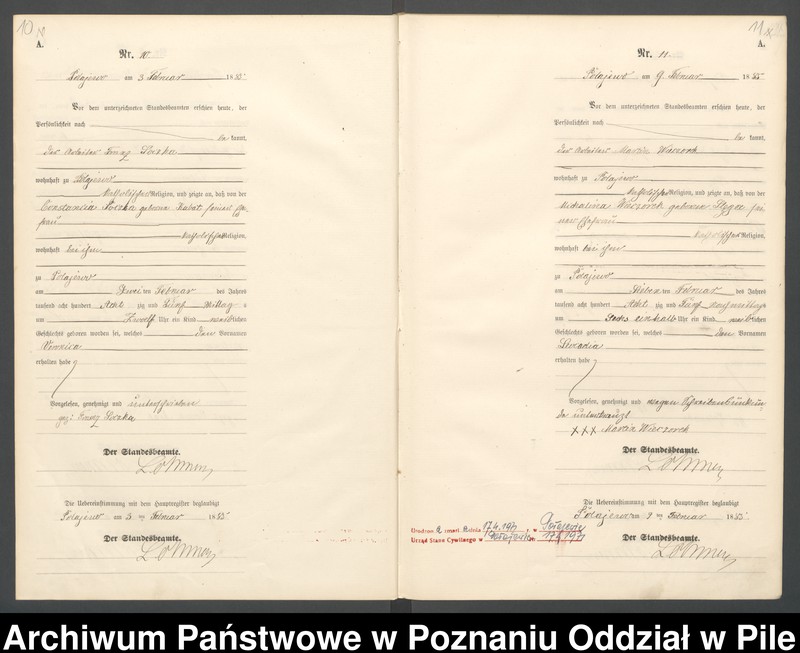 10
A.
Nr. 10
Polajewo am 3 Februar 1885
Vor dem unterzeichneten Standesbeamten erschien heute, der
Persönlichkeit nach
be kannt,
der Arbeiter Franz
wohnhaft zu Polajewo
katholischer Religion, und zeigte an, daß von der
Constancia geborene seiner Ehe-
frau
katholischer Religion,
wohnhaft bei ihm
zu Polajewo
am Zwei ten Februar des Jahres
tausend acht hundert Acht zig und Fünf Mittag s
um Zwölf Uhr ein Kind weib lichen
Geschlechts geboren worden sei, welches den Vornamen
Veronica
erhalten habe
Vorgelesen, genehmigt und unterschrieben
gez: Franz
Der Standesbeamte.
Die Uebereinstimmung mit dem Hauptregister beglaubigt
Polajewo am 3 ten Februar 1885
Der Standesbeamte.
11
A.
Nr. 11
Polajewo am 9 Februar 1885
Vor dem unterzeichneten Standesbeamten erschien heute, der
Persönlichkeit nach
be kannt,
der Arbeiter Martin Wieczorek
wohnhaft zu Polajewo
katholischer Religion, und zeigte an, daß von der
Michalina Wieczorek geborene sei-
ner Ehefrau
katholischer Religion,
wohnhaft bei ihm
zu Polajewo
am Sieben ten Februar des Jahres
tausend acht hundert Acht zig und Fünf nachmittags
um Sechs einhalb Uhr ein Kind weib lichen
Geschlechts geboren worden sei, welches den Vornamen
Leocadia
erhalten habe
Vorgelesen, genehmigt und wegen Schreibensunkun-
de unterkreuzt
XXX Martin Wieczorek
Der Standesbeamte.
Die Uebereinstimmung mit dem Hauptregister beglaubigt
Polajewo am 9 ten Februar 1885
Der Standesbeamte.
17.4.1971 r. w
Urząd Stanu Cywilnego w
Archiwum Państwowe w Poznaniu Oddział w Pile